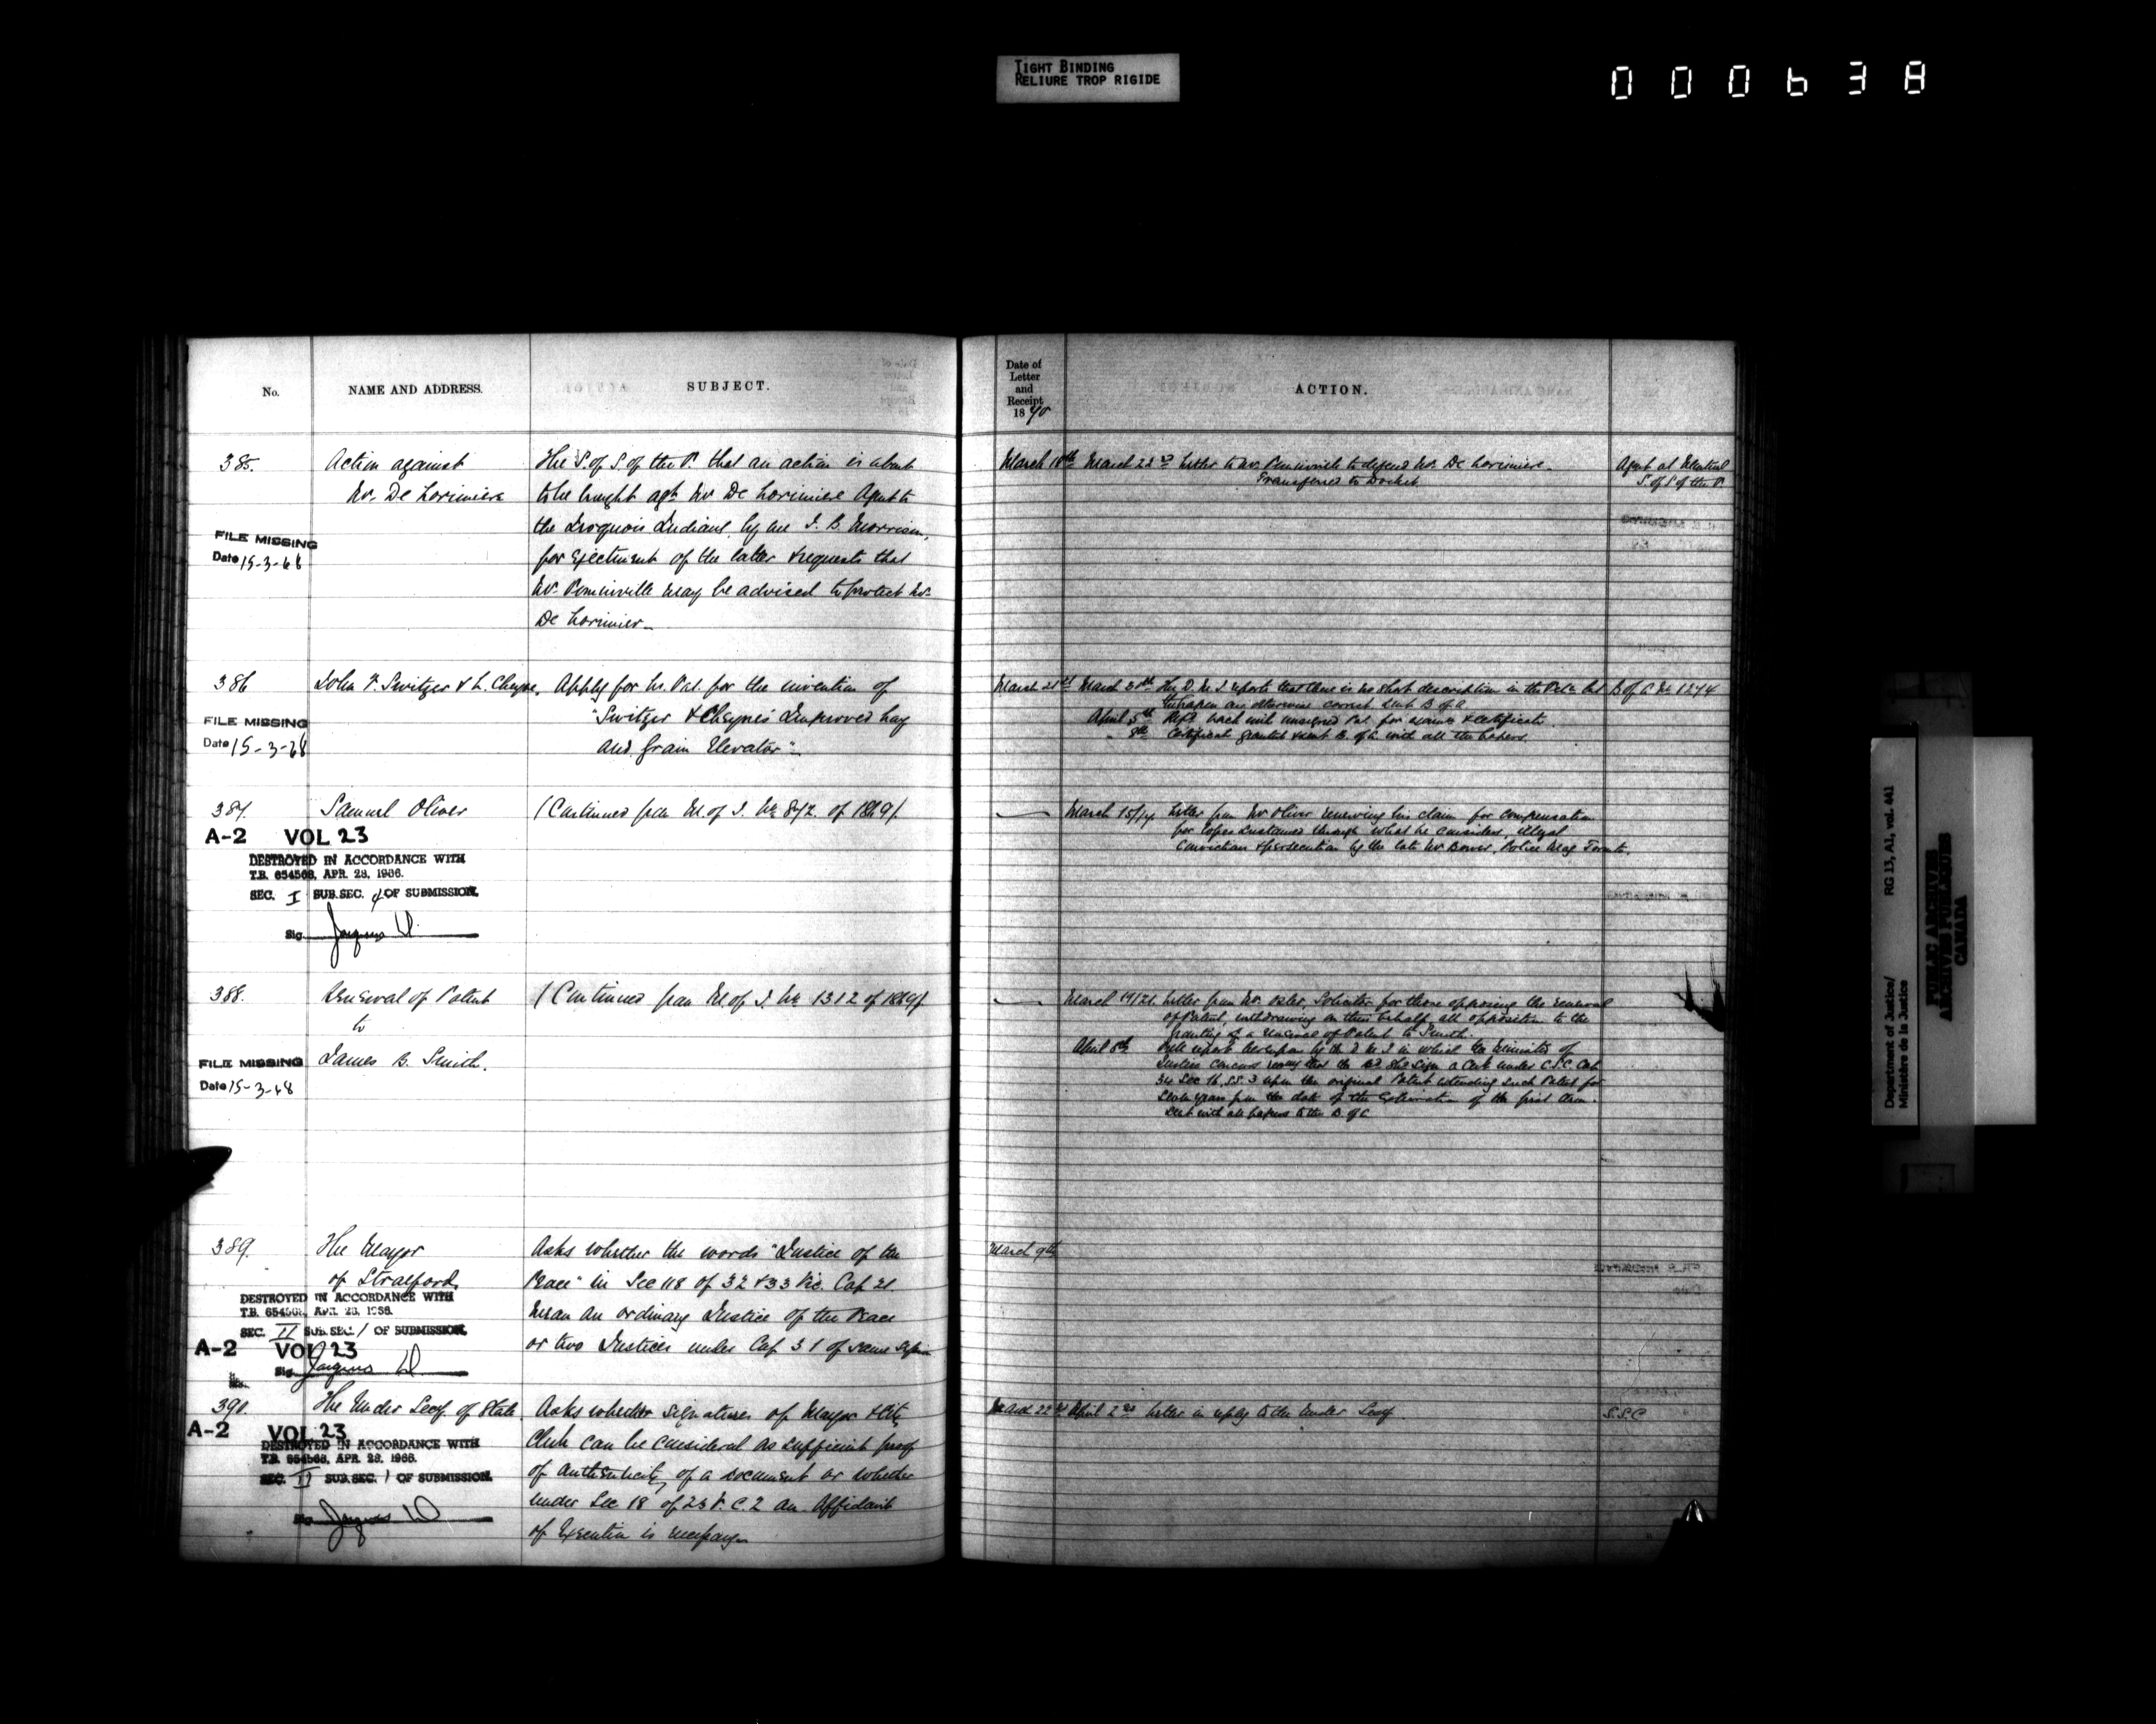 TIGHT BINDING
RELIURE TROP RIGIDE
000638
No.
NAME AND ADDRESS.
SUBJECT.
385.
Action against
Mr. De Lorimiere
FILE MISSING
Date 15-3-68
The S. of S. of the P. that an action is about
to be brought agt. Mr De Lorimiere Agent to
the Iroquois Indians, by one J. B. Morrison,
for ejectment of the latter & requests that
Mr. Pominville may be advised to protect Mr.
De Lorimier
386
John F. Switzer & L. Cheyne.
FILE MISSING
Date 15-3-68
Apply for Lrs. Pat. for the invention of
"Switzer & Cheyne's Improved hay
and Grain Elevator"
387.
Samuel Oliver
A-2 VOL 23
DESTROYED IN ACCORDANCE WITH
T.B. 654568, APR. 28, 1966.
SEC. I SUB.SEC. 4 OF SUBMISSION.
Sig.
(Continued from M. of J. No 872. of 1869).
388.
Renewal of Patent
to
James B. Smith.
FILE MISSING
Date 15-3-68
(Continued from M. of J. No 1312 of 1869).
389.
The Mayor
of Stratford.
DESTROYED IN ACCORDANCE WITH
T.B. 654568, APR. 28, 1966.
SEC. II SUB.SEC. 1 OF SUBMISSION.
A-2 VOL 23
Sig.
Asks whether the words "Justice of the
Peace" in Sec 118 of 32 & 33 Vic. Cap 21.
mean an ordinary Justice of the Peace
or two Justices under Cap 31 of same
390.
The Under Secy. of State.
A-2 VOL 23
DESTROYED IN ACCORDANCE WITH
T.B. 654568, APR. 28, 1966.
SEC. II SUB.SEC. 1 OF SUBMISSION.
Asks whether signatures of Mayor & City
Clerk can be considered as sufficient proof
of authenticity of a document or whether
under Sec 18 of 23 V. C. 2 an Affidavit
of Execution is necessary
Date of
Letter
and
Receipt
1870
ACTION.
March 18th March 23rd Letter to Mr. Pominville to defend Mr. De Lorimiere.
Transferred to Docket
Agent at Montreal
S. of S of the P.
March 21st March 30th The D. M. J reports that there is no short description in the Petn. but
the papers are otherwise correct. Sent B of A.
B of A No 1274
April 5th Refd back with unsigned Pat. for exam & certificate.
" 8th Certificate granted & sent B. of A. with all the papers.
March 15/14 Letter from Mr Oliver renewing his claim for compensation
for losses sustained through what he considers, illegal
Conviction & prosecution by the late Mr , Police Mag Toronto.
March 19/21. Letter from Mr. Osler, Solicitor for those opposing the renewal
of Patent, withdrawing on their behalf all opposition to the
granting of a renewal of Patent to Smith.
April 8th report hereupon by the D M J in which the Minister of
Justice concurs that the Sign a Cert. under C.S.C. Cap.
34 Sec 16, SS. 3 upon the original Patent extending such Patent for
Seven years from the date of the Expiration of the first term.
Sent with all papers to the B of A
March 9th
March 22nd April 2nd Letter in reply to the Under Secy
S.S.C
Department of Justice/
Ministère de la Justice
RG 13, A1, vol. 441
PUBLIC ARCHIVES
ARCHIVES PUBLIQUES
CANADA